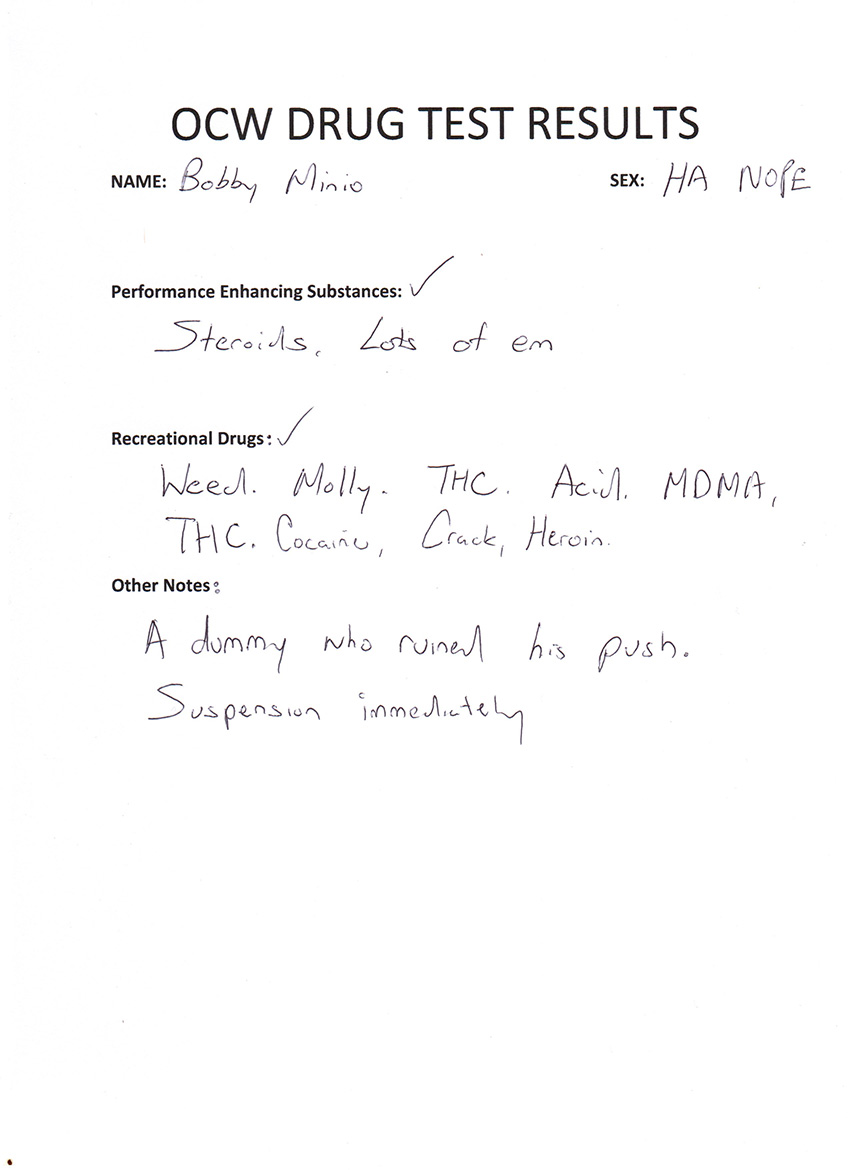 OCW DRUG TEST RESULTS
NAME: Bobby Minio SEX: HA NOPE
Performance Enhancing Substances: ✓
Steroids. Lots of em
Recreational Drugs: ✓
Weed. Molly. THC. Acid. MDMA,
THC. Cocaine, Crack, Heroin.
Other Notes:
A dummy who ruined his push.
Suspension immediately